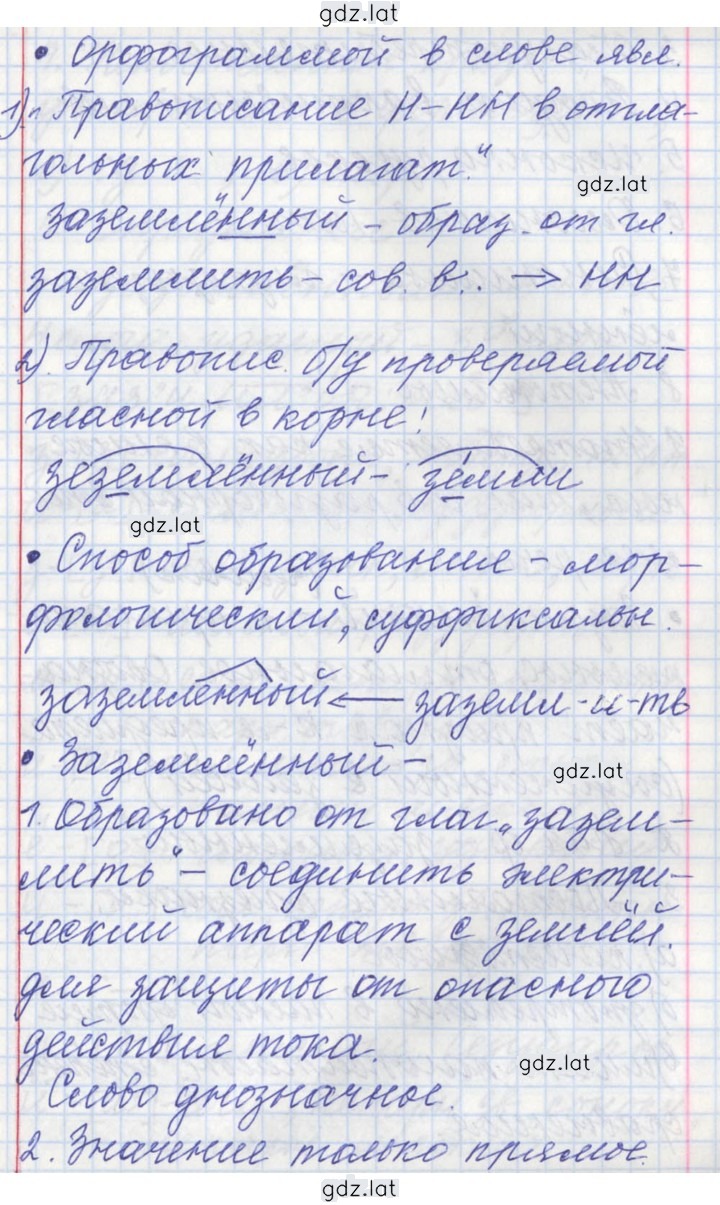 gdz.lat
• Орфограммой в слове явл.
1) „Правописание Н-НН в отгла-
гольных прилагат."
gdz.lat
заземлённый - образ. от гл.
заземлить - сов. в. → НН
2). Правопис. б/у проверяемой
гласной в корне!
зеземлённый - земли
gdz.lat
• Способ образования - мор-
фологический, суффиксальн.
заземленный ← заземл-и-ть
• Заземлённый -
gdz.lat
1. Образовано от глаг. „зазем-
лить" - соединить электри-
ческий аппарат с землёй.
для защиты от опасного
действия тока.
gdz.lat
Слово днозначное.
2. Значение только прямое.
gdz.lat